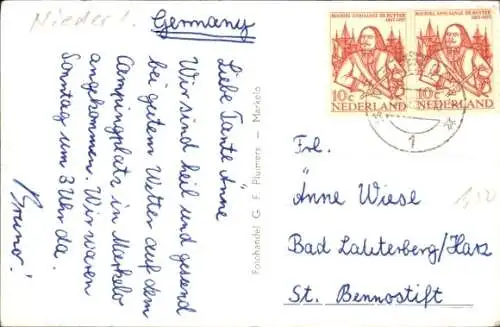 Nieder l.
Germany
Liebe Tante Änne
Wir sind heil und gesund
bei gutem Wetter auf dem
Campingplatz in Markelo
angkommen. Wir waren
Sonntag um 3 Uhr da.
Bruno!
Fotohandel G. F. Pluimers — Markelo
MICHIEL ADRIAANSZ. DE RUYTER
1607-1957
10c
NEDERLAND
MICHIEL ADRIAANSZ. DE RUYTER
1607-1957
10c
NEDERLAND
1
Frl.
Änne Wiese
Bad Lauterberg/Harz
St. Bennostift